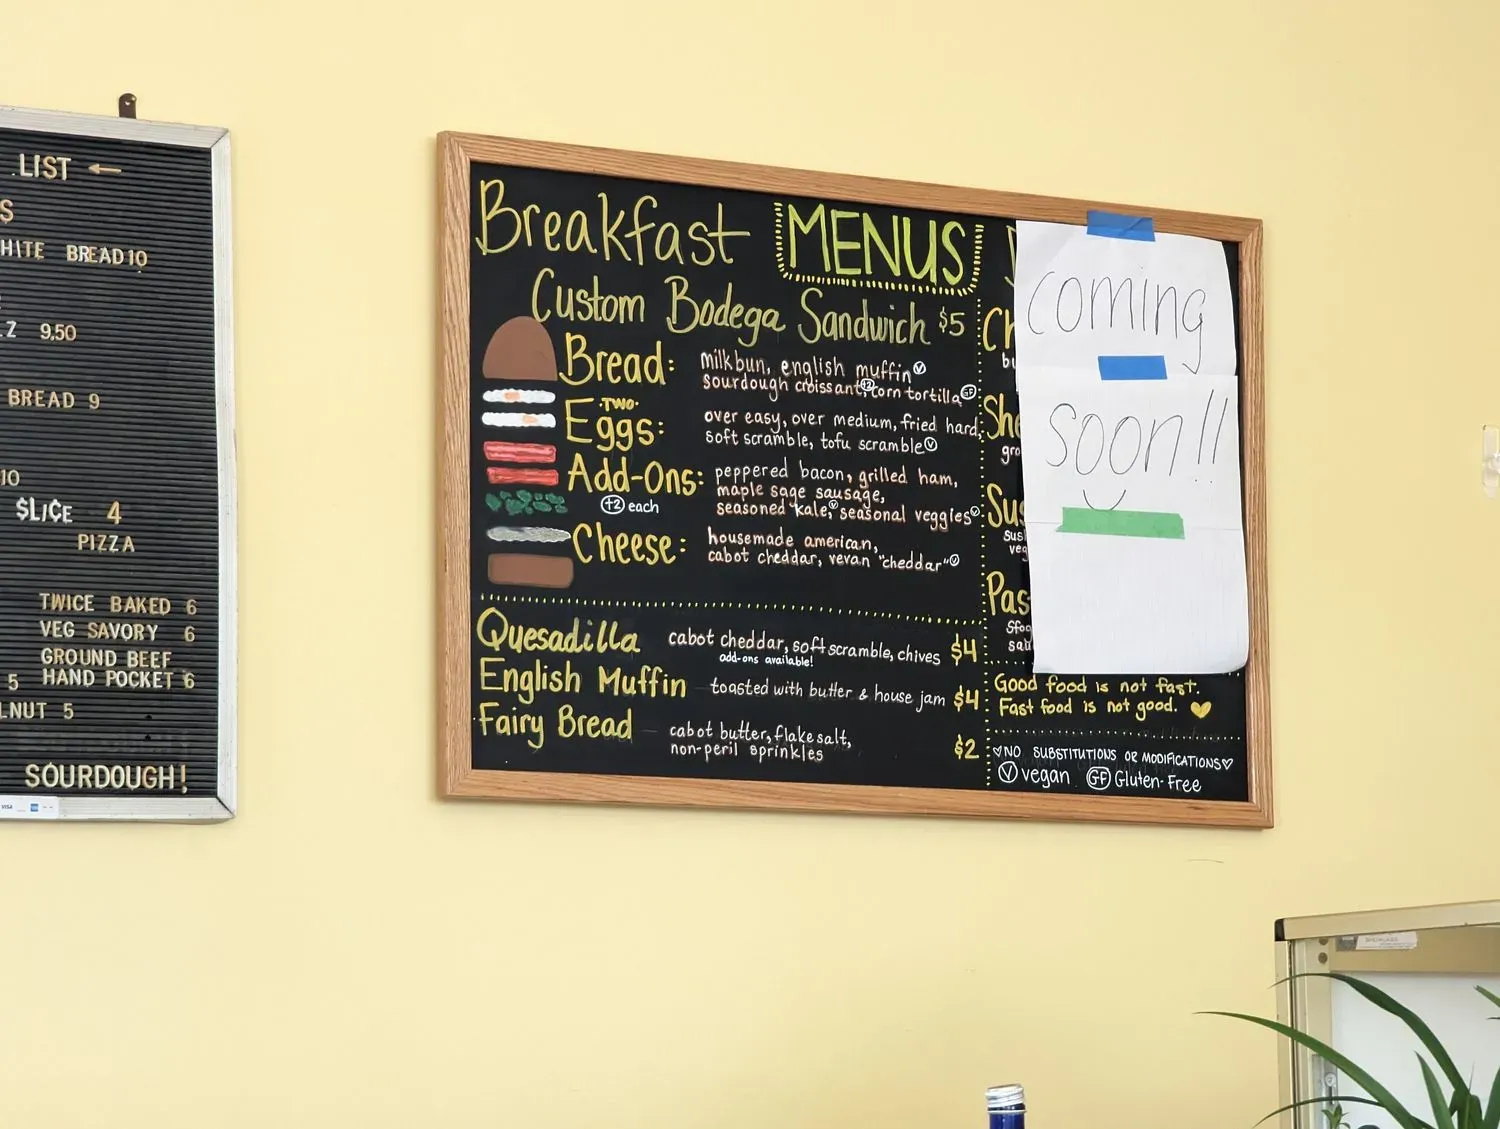 LIST ←
S
HITE BREAD 10
LZ 9.50
BREAD 9
10
$LICE 4
PIZZA
TWICE BAKED 6
VEG SAVORY 6
GROUND BEEF
5 HAND POCKET 6
LNUT 5
SOURDOUGH!
VISA
Breakfast
MENUS
Custom Bodega Sandwich $5
Bread: milkbun, english muffin Ⓥ
sourdough croissant, +2 corn tortilla GF
TWO
Eggs: over easy, over medium, fried hard,
soft scramble, tofu scramble Ⓥ
Add-Ons: peppered bacon, grilled ham,
+2 each maple sage sausage,
seasoned kale, Ⓥ seasonal veggies Ⓥ
Cheese: housemade american,
cabot cheddar, vevan "cheddar" Ⓥ
Quesadilla cabot cheddar, soft scramble, chives $4
add-ons available!
English Muffin toasted with butter & house jam $4
Fairy Bread cabot butter, flake salt,
non-peril sprinkles $2
coming
soon!!
Ch
bu
She
gro
Sus
sus
veg
Pas
sfog
sau
Good food is not fast.
Fast food is not good. ♥
♡NO SUBSTITUTIONS OR MODIFICATIONS♡
Ⓥ vegan GF Gluten-Free